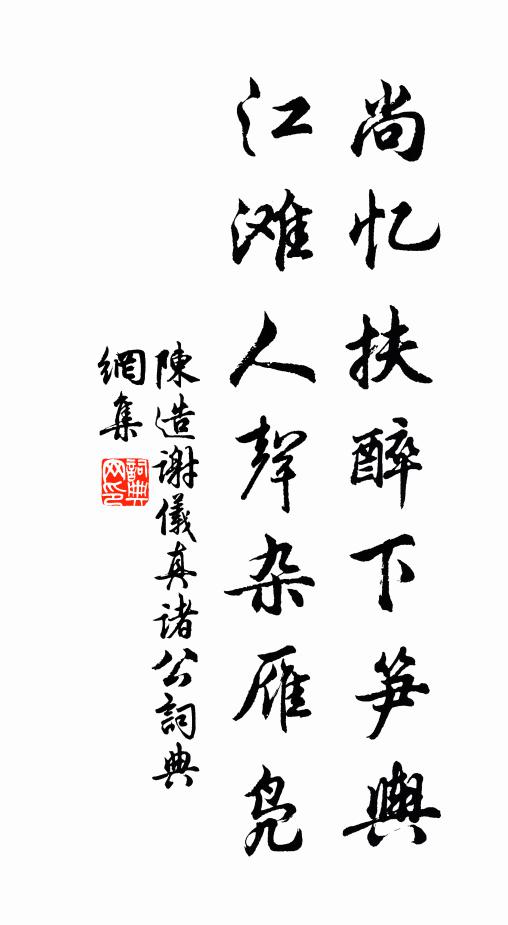 尚忆扶醉下笋舆
江滩人聲杂雁凫
陳造谢儀真诸公詞典
網集
詞典网印